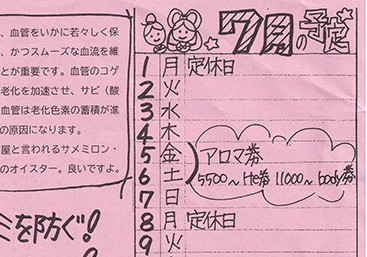 、血管をいかに若々しく保
、かつスムーズな血流を維
とが重要です。血管のコゲ
老化を加速させ、サビ（酸
血管は老化色素の蓄積が進
の原因になります。
屋と言われるサメミロン・
のオイスター。良いですよ。
ミを防ぐ!
7月の予定
1 月 定休日
2 火
3 水
4 木
5 金 アロマ券
6 土 5500～ 11000～ body券
7 日
8 月 定休日
9 火